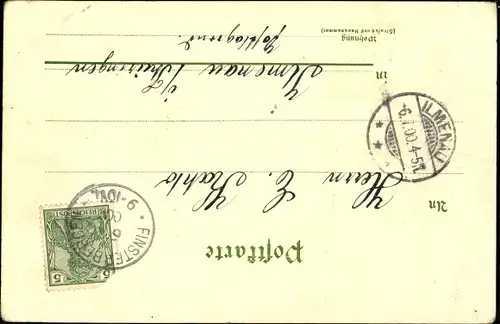 Postkarte
An
Herrn C. Kahlo
in
Ilmenau i/Thüringen
Wohnung
(Straße und Hausnummer)
postlagernd.
ILMENAU
-6.7.00.4-5N.
* *
REICHSPOST
5 5
FINSTERBERGEN
9-10V.